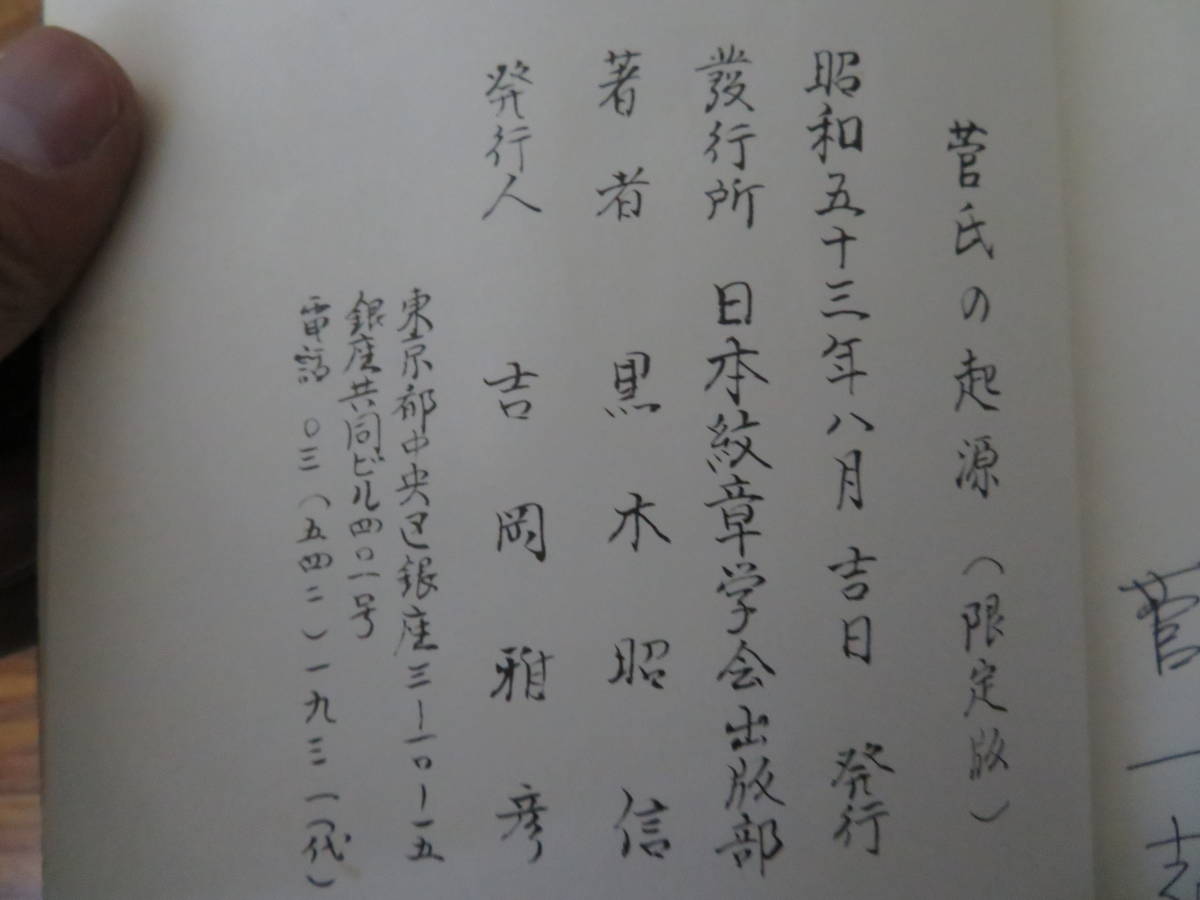 菅氏の起源（限定版）
昭和五十三年八月吉日 発行
發行所 日本紋章学会出版部
著者 黒木昭信
発行人 吉岡雅彦
東京都中央区銀座三ー一〇ー一五
銀座共同ビル四〇一号
電話 〇三（五四二）一九三一（代）
菅一